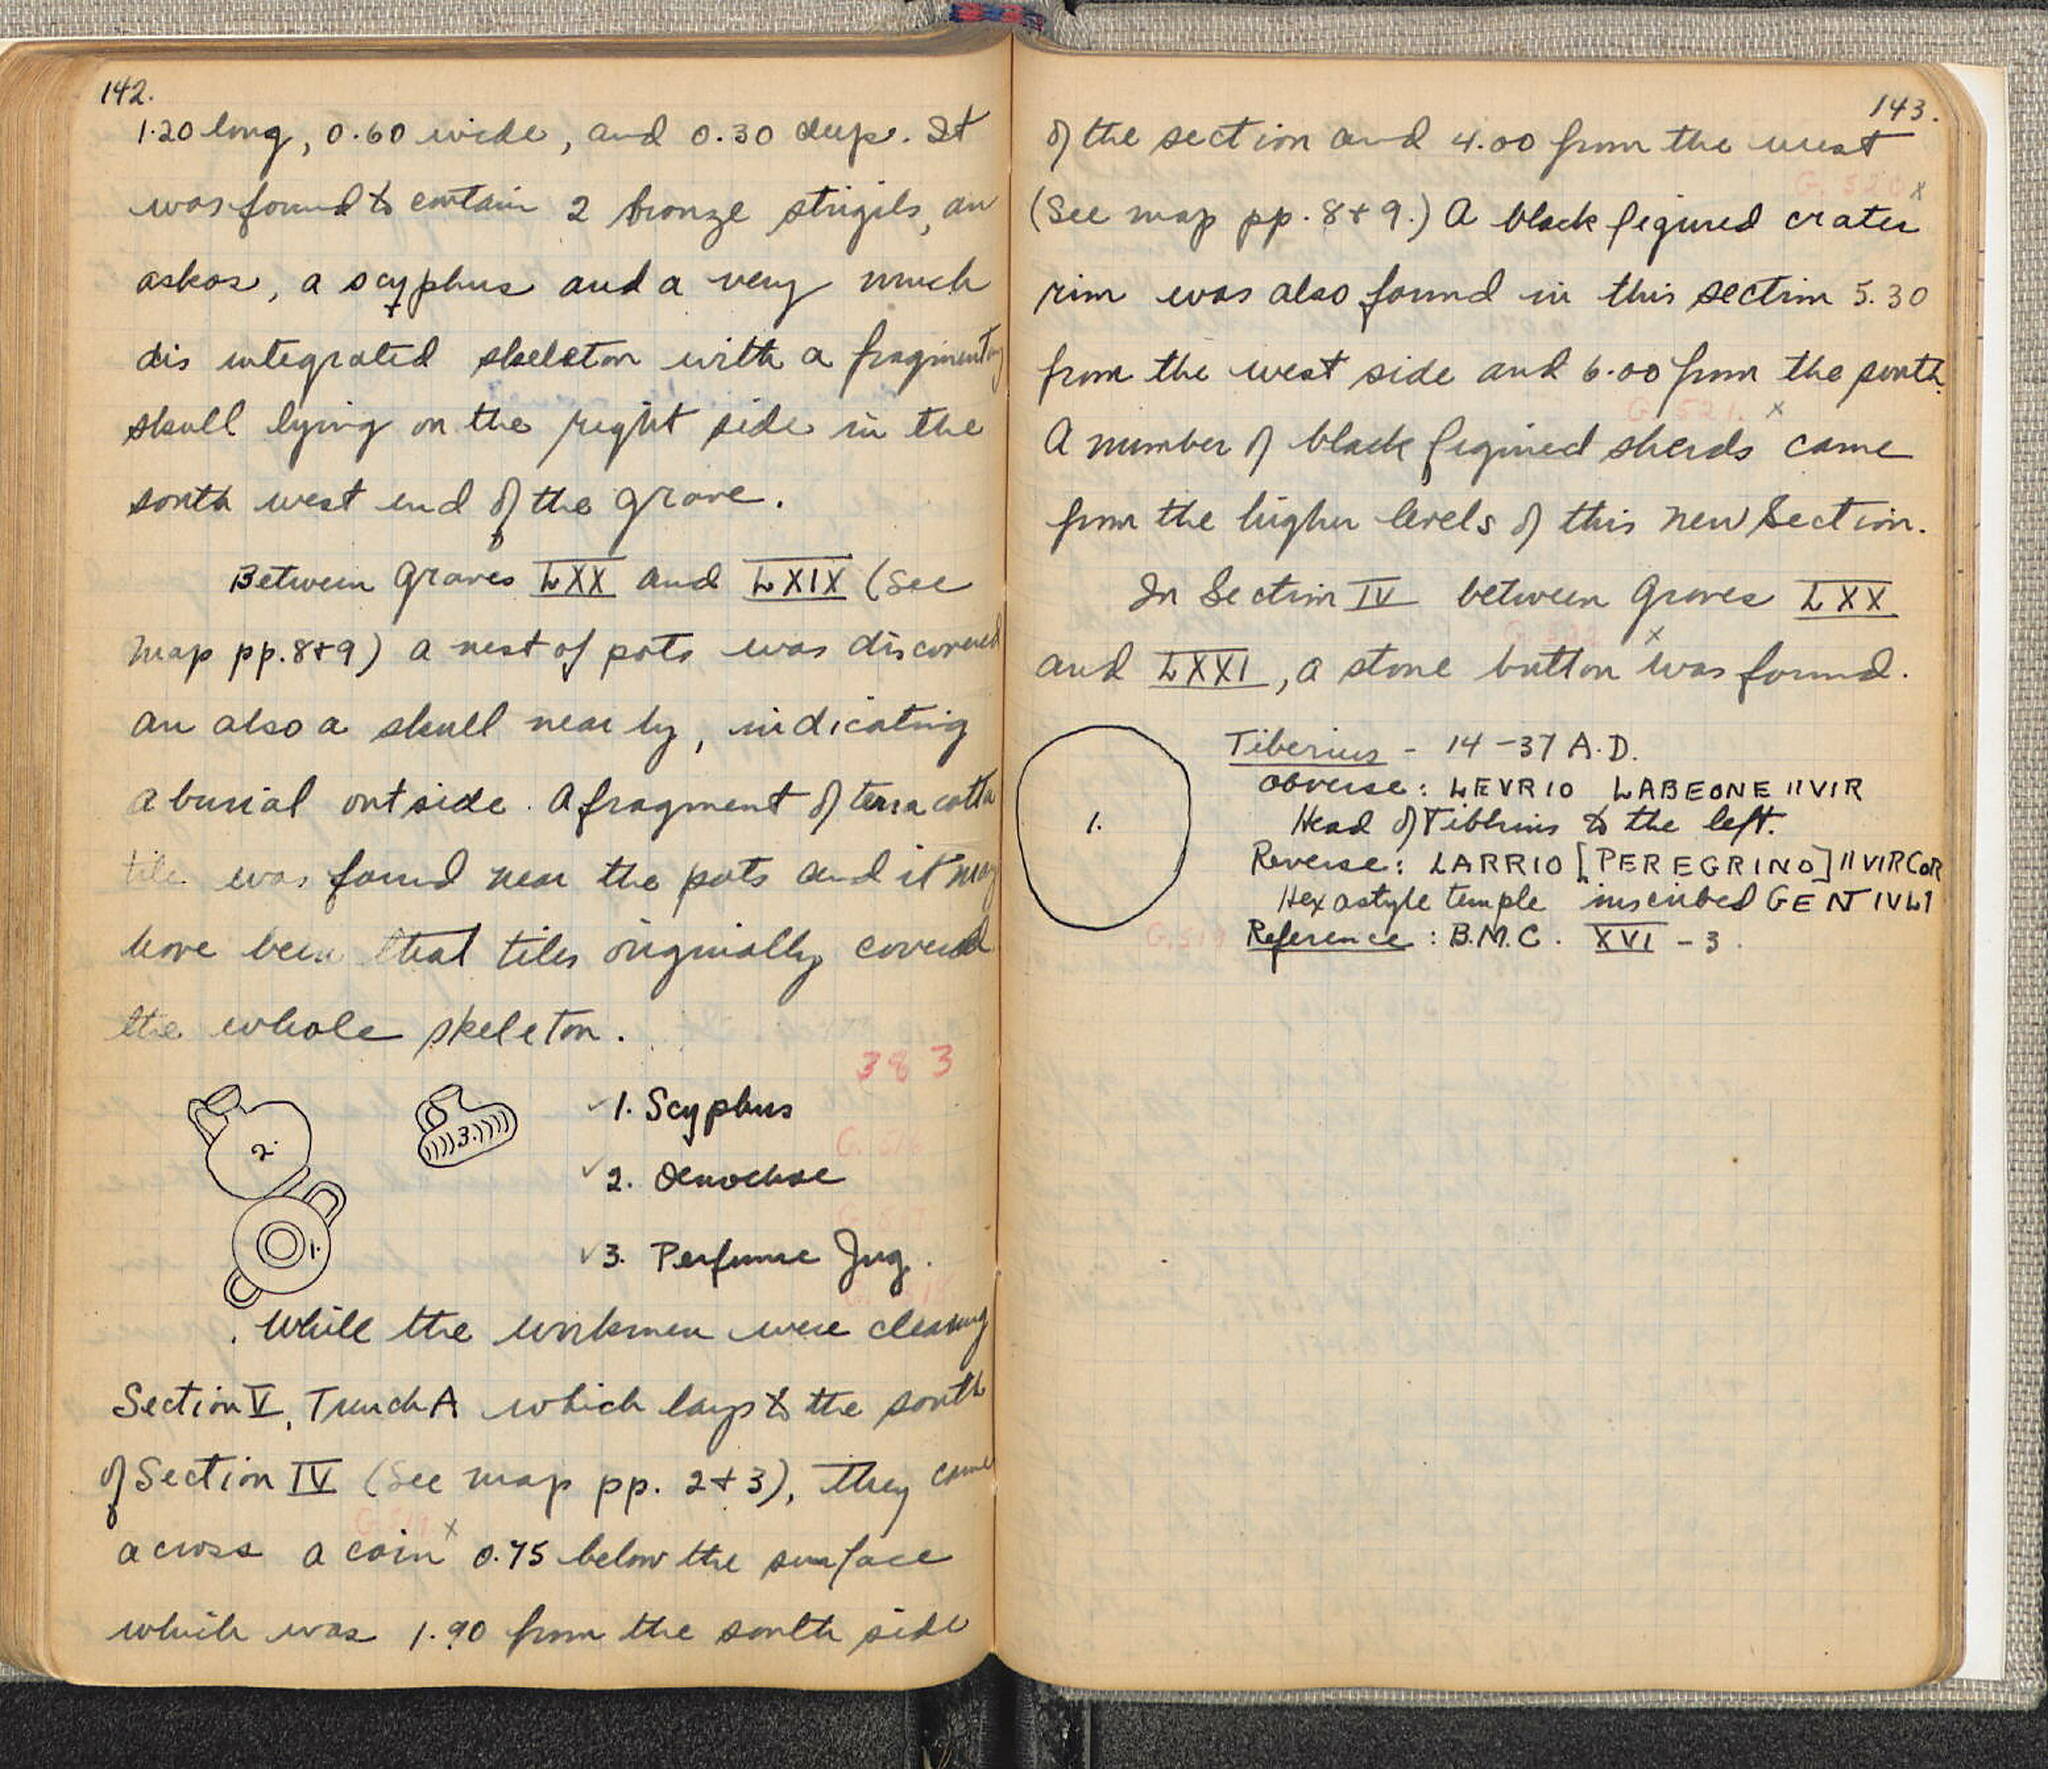 142.
1.20 long, 0.60 wide, and 0.30 deep. It
was found to contain 2 bronze strigils, an
askos, a scyphus and a very much
dis integrated skeleton with a fragmentary
skull lying on the right side in the
south west end of the grave.
Between Graves LXX and LXIX (See
map pp. 8+9) a nest of pots was discovered
an also a skull near by, indicating
a burial outside. A fragment of terra cotta
tile was found near the pots and it may
have been that tiles originally covered
the whole skeleton.
383
2.
3.
1.
1. Scyphus
2. Oenochoe
3. Perfume Jug.
While the workmen were cleaning
Section V, Trench A which lays to the south
of Section IV (See map pp. 2+3), they came
G.519
across a coin x 0.75 below the surface
which was 1.90 from the south side
143.
of the section and 4.00 from the west
G. 520 x
(See map pp. 8+9.) A black figured crater
rim was also found in this section 5.30
from the west side and 6.00 from the south.
G. 521. x
A number of black figured sherds came
from the higher levels of this new Section.
In Section IV between Graves LXX
G. 522 x
and LXXI, a stone button was found.
1.
Tiberius - 14-37 A.D.
Obverse: LEVRIO LABEONE IIVIR
Head of Tiberius to the left.
Reverse: LARRIO [PEREGRINO] IIVIR COR
Hexastyle temple inscribed GENT IVLI
G.519 Reference: B.M.C. XVI - 3.